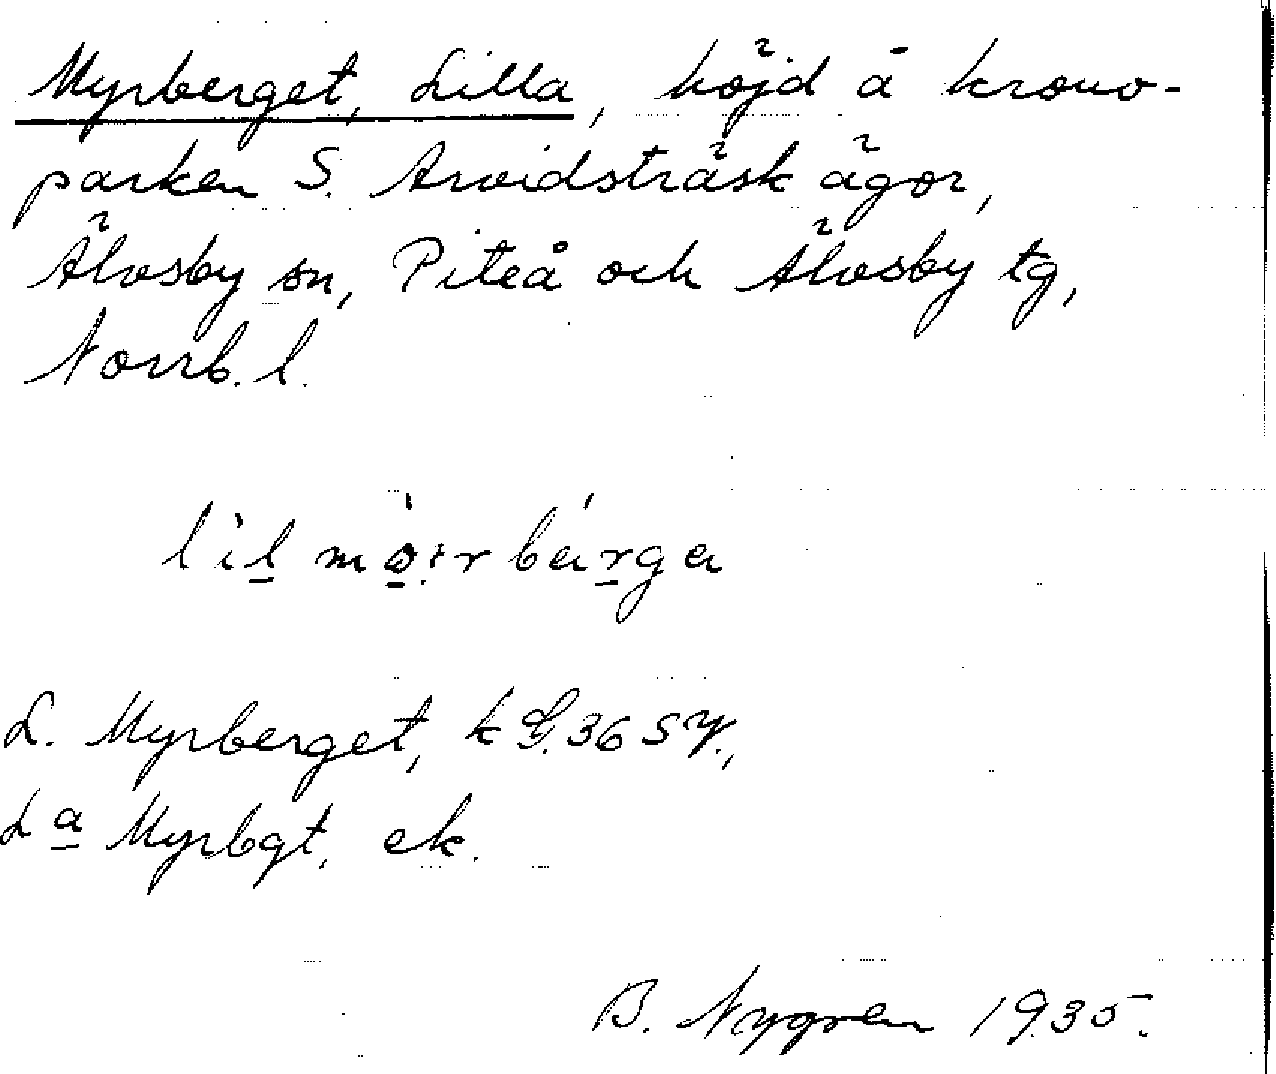 Myrberget, Lilla, höjd å krono-
parken S. Arvidsträsk ägor,
Älvsby sn, Piteå och Älvsby tg,
Norrb. l.
lil mo:r bärga
L. Myrberget, k G. 36 SV.,
La Myrbgt, ek.
B. Nygren 1935.